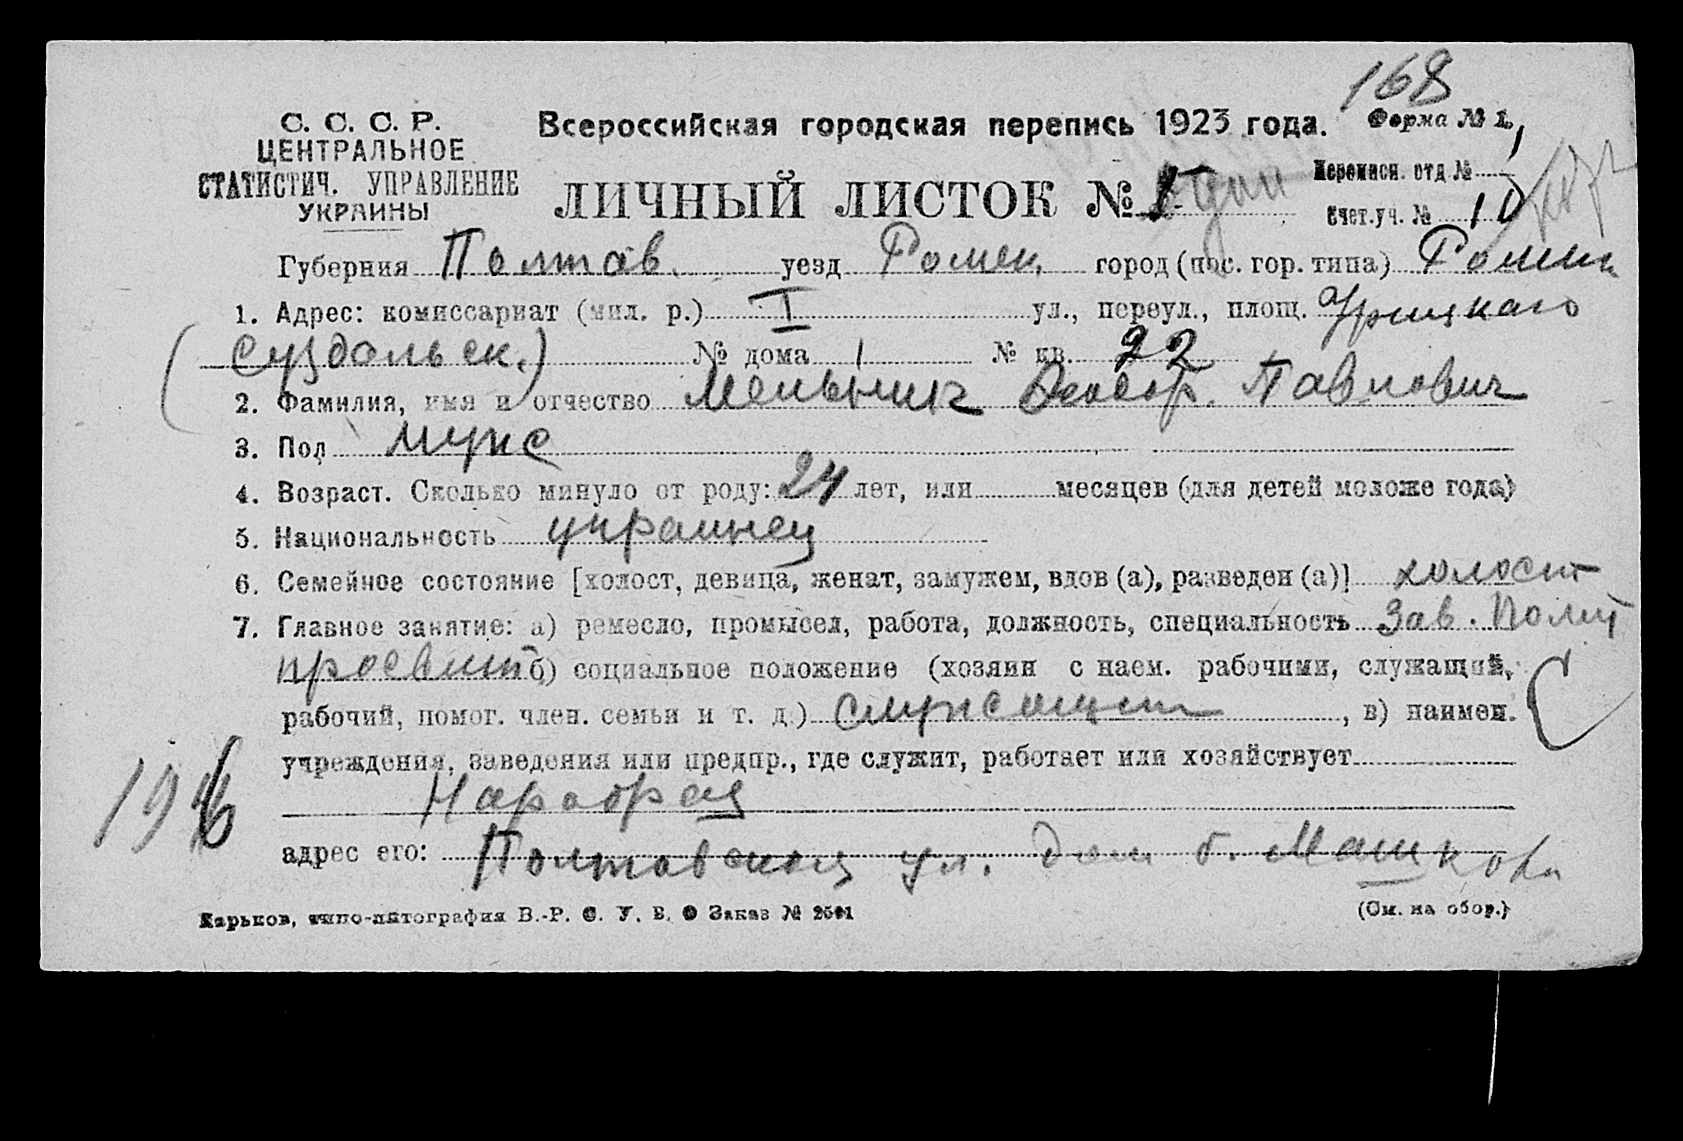 168
С. С. С. Р.
ЦЕНТРАЛЬНОЕ
СТАТИСТИЧ. УПРАВЛЕНИЕ
УКРАИНЫ
Всероссийская городская перепись 1923 года.
Форма № 1.
ЛИЧНЫЙ ЛИСТОК №
Переписн. отд. № 1
Счет. уч. № 10
Губерния Полтав. уезд Ромен. город (пос. гор. типа) Ромны
1. Адрес: комиссариат (мил. р.) I ул., переул., площ. Урицкаго
(Суздальск.) № дома 1 № кв. 22
2. Фамилия, имя и отчество Мельник Феодор. Павлович
3. Пол муж
4. Возраст. Сколько минуло от роду: 24 лет, или месяцев (для детей моложе года)
5. Национальность украинец
6. Семейное состояние [холост, девица, женат, замужем, вдов (а), разведен (а)] холост
7. Главное занятие: а) ремесло, промысел, работа, должность, специальность Зав. Полит
просвит б) социальное положение (хозяин с наем. рабочими, служащий,
рабочий, помог. член. семьи и т. д.) служащий, в) наимен.
учреждения, заведения или предпр., где служит, работает или хозяйствует
Наробраз
адрес его: Полтавской ул. дом б. Машкова
Харьков, типо-литография В.-Р. С. У. В. Заказ № 2501
(См. на обор.)